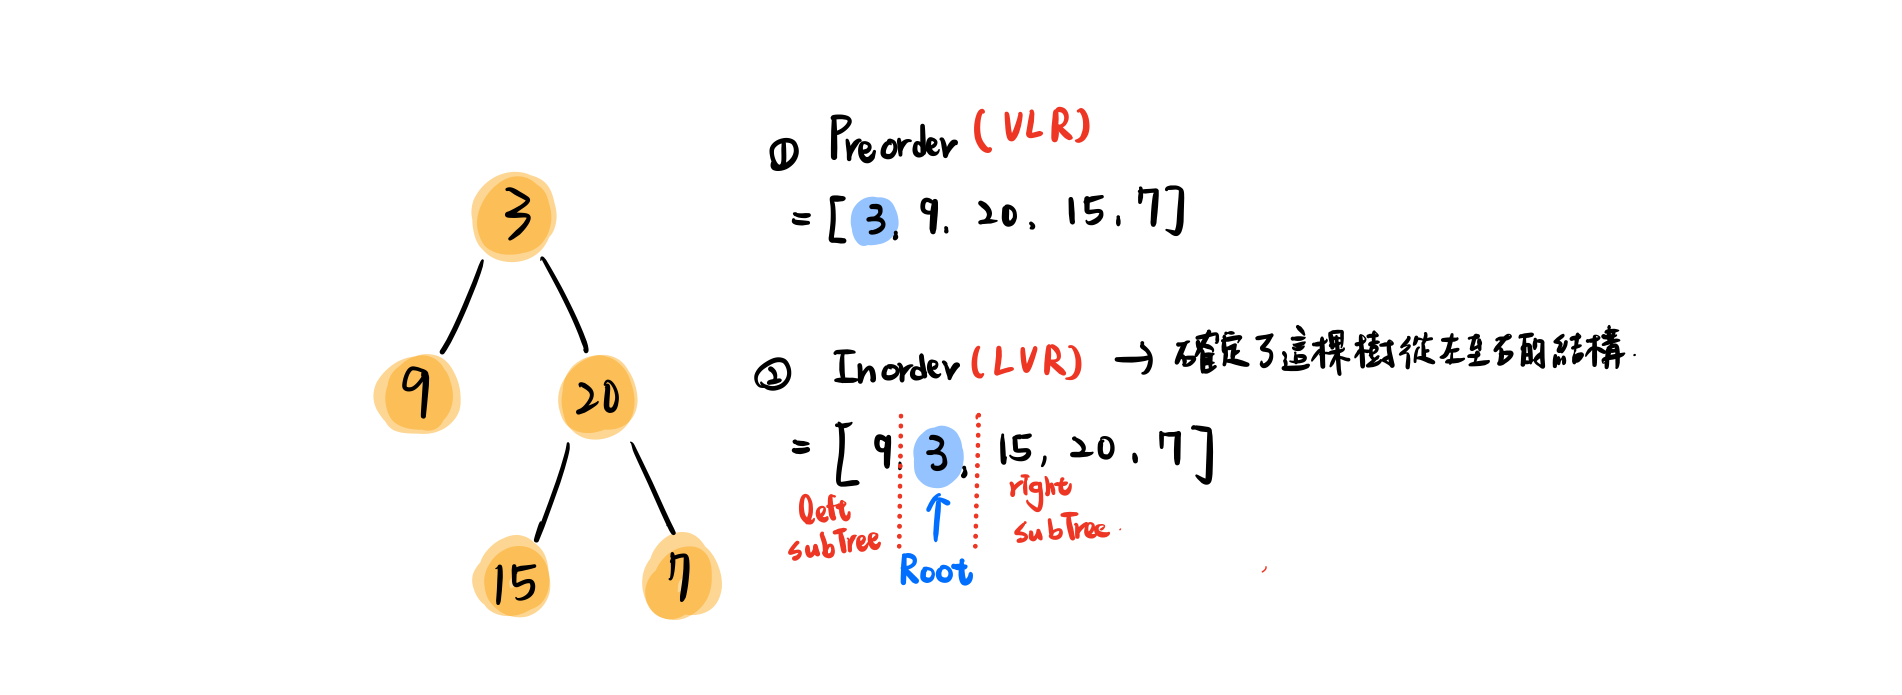 3
9
20
15
7
① Preorder (VLR)
= [ 3, 9, 20, 15, 7 ]
② Inorder (LVR) → 確定了這棵樹從左至右的結構.
= [ 9, 3, 15, 20, 7 ]
left subTree
Root
right subTree.